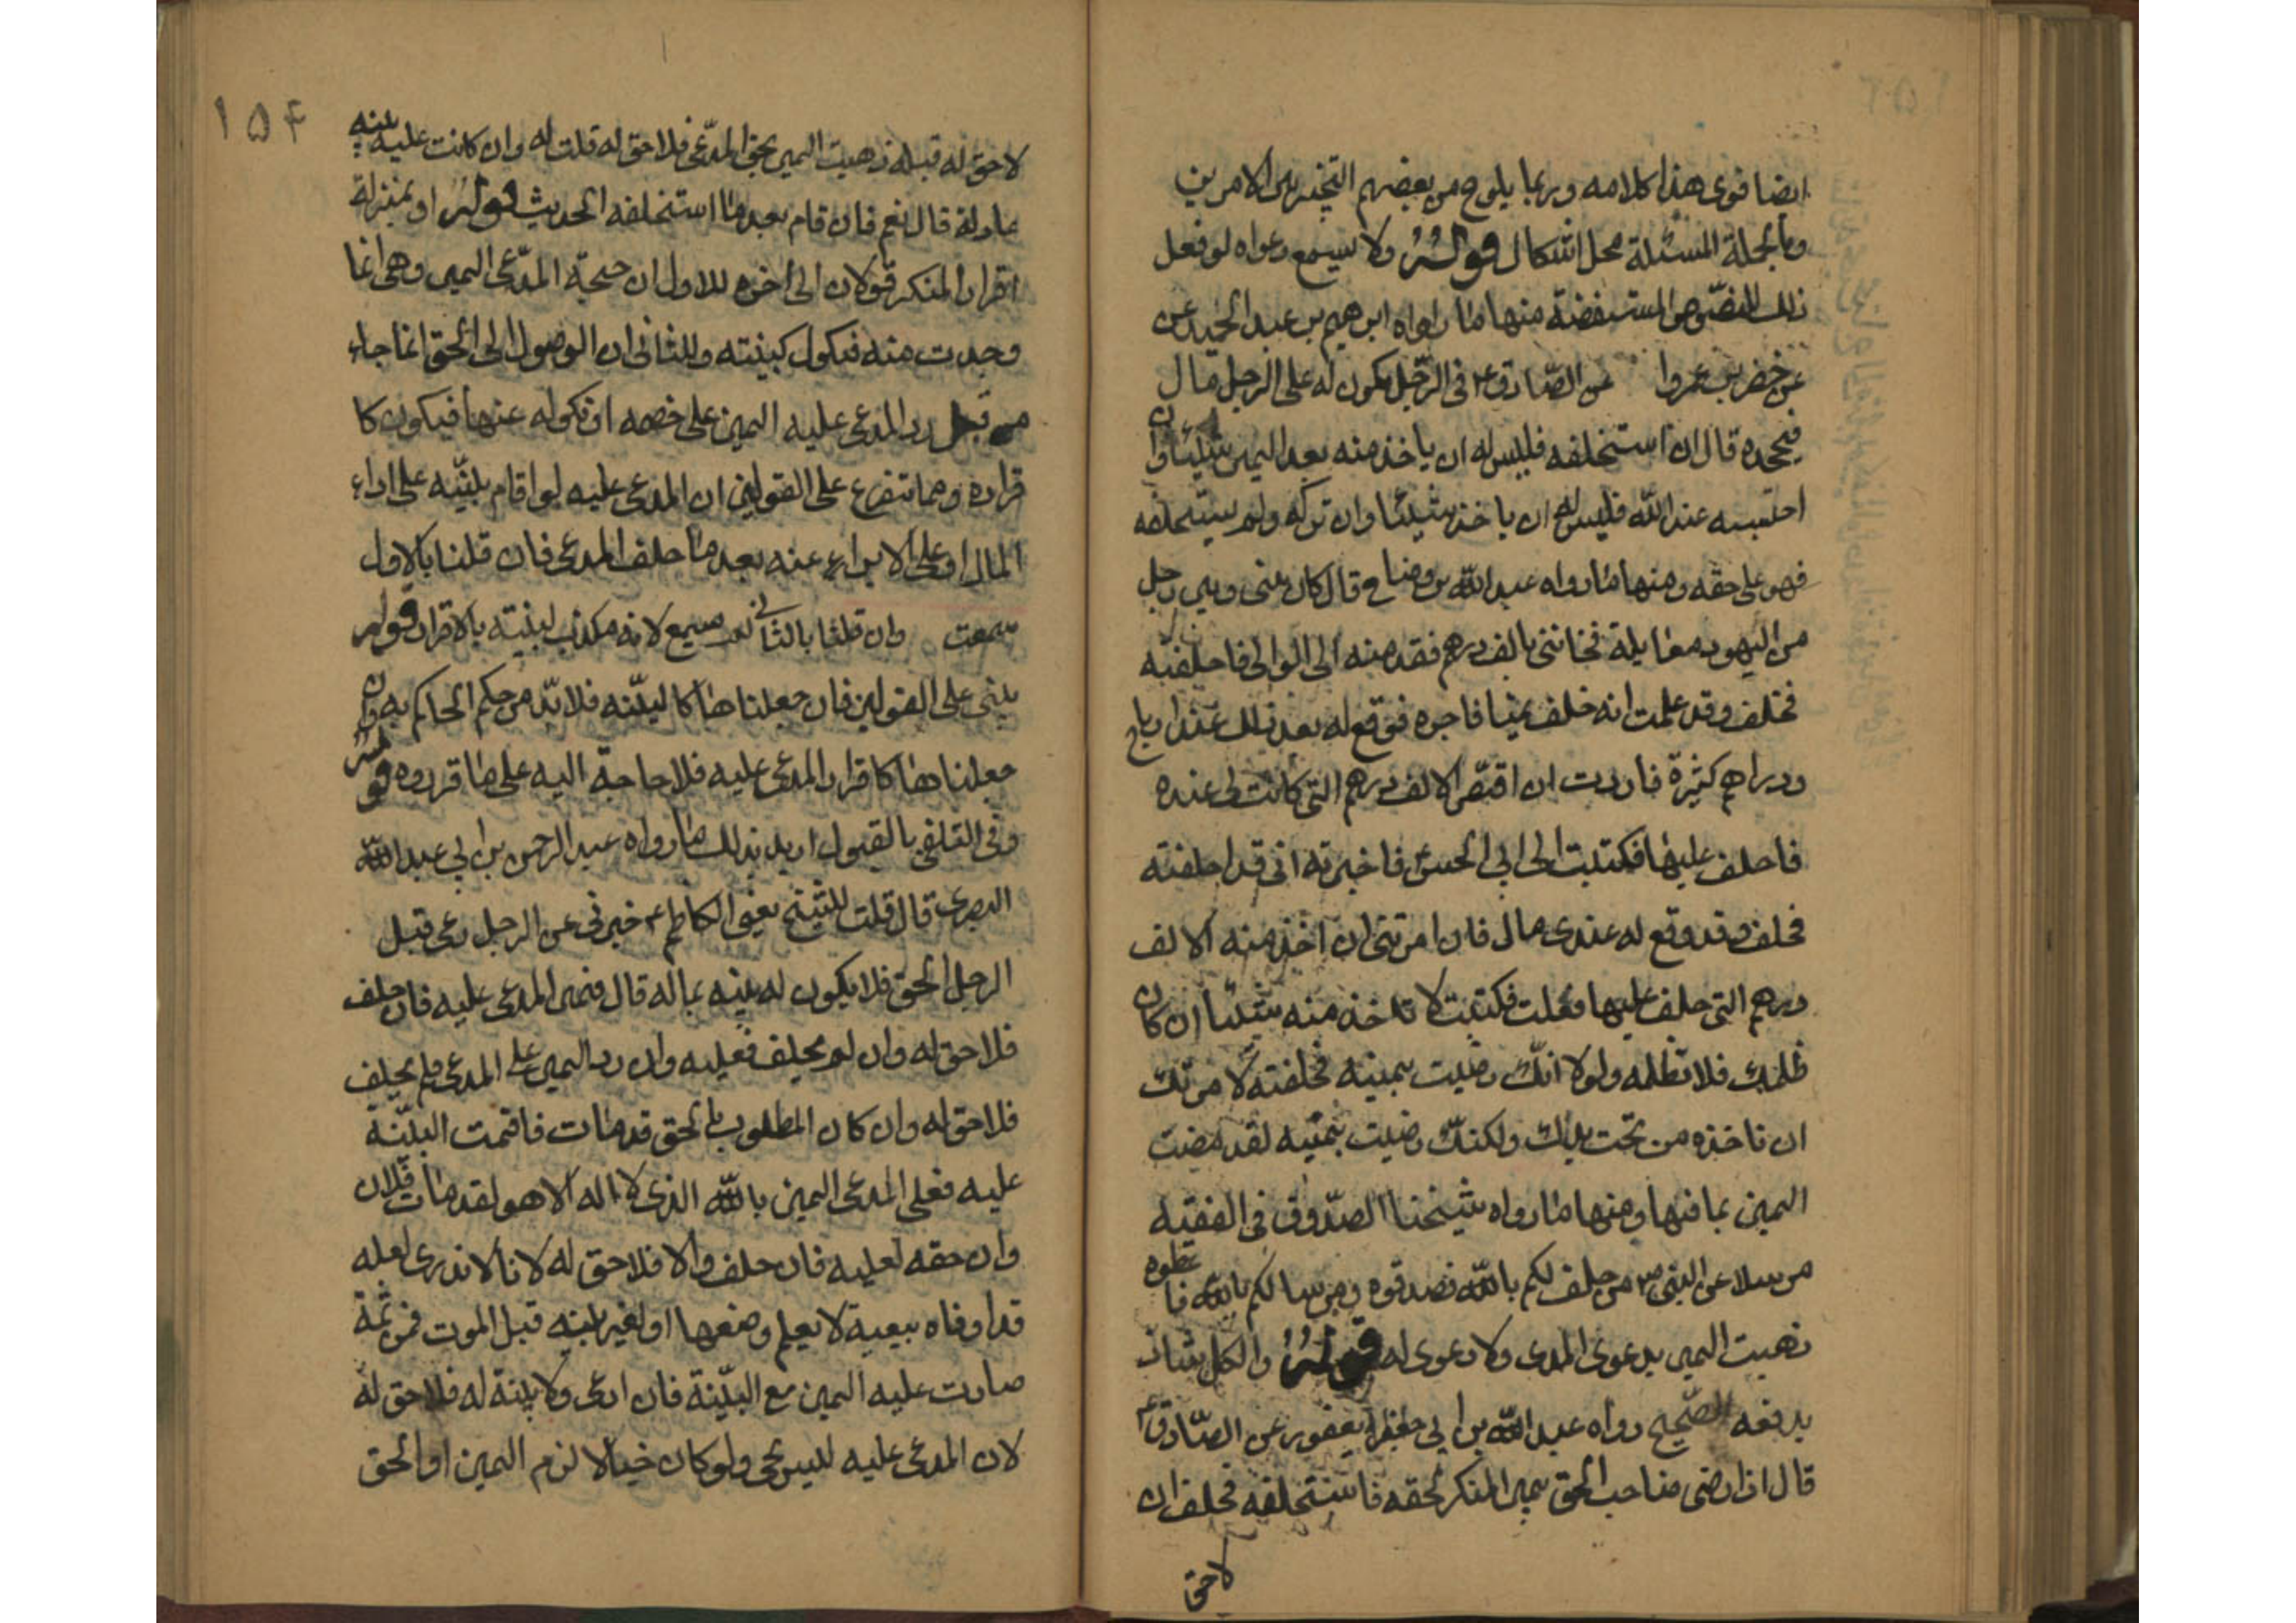 ايضا قوى هذا كلامه وربما يلوح من بعضهم التخيير بين الامرين
وبالجملة المسئلة محل اشكال قوله ولا يسمع دعواه لو فعل
ذلك للنصوص المستفيضة منها ما رواه ابرهيم بن عبد الحميد عن
عن خضر بن عمروا عن الصادق ع في الرجل يكون له على الرجل مال
فيجحده قال ان استحلفه فليس له ان ياخذ منه بعد اليمين شيئا وان
احتسبه عند الله فليس له ان ياخذ شيئا وان تركه ولم يستحلفه
فهو على حقه ومنها ما رواه عبد الله بن وضاح قال كان بيني وبين رجل
من اليهود معاملة فخانني بالف درهم فقدمته الى الوالي فاحلفته
فحلف وقد علمت انه حلف يمينا فاجره فوقع له بعد ذلك عندي ارباح
ودراهم كثيرة فاردت ان اقتص الالف درهم التي كانت لي عنده
فاحلف عليها فكتبت الى ابي الحسن فاخبرته اني قد احلفته
فحلف وقد وقع له عندي مال فان امرتني ان اخذ منه الالف
درهم التي حلف عليها فعلت فكتبت لا تاخذ منه شيئا ان كان
ظلمك فلا تظلمه ولولا انك رضيت بيمينه فحلفته لامرتك
ان تاخذه من تحت يدك ولكنك رضيت بيمينه لقد مضت
اليمين بما فيها ومنها ما رواه شيخنا الصدوق في الفقيه
مرسلا عن النبي ص من حلف لكم بالله فصدقوه ومن سالكم بالله فاعطوه
ذهبت اليمين بدعوى المدعى ولا دعوى له قوله والكل شاذ
يدفعه الصحيح رواه عبد الله بن ابي يعفور عن الصادق ع
قال اذا رضي صاحب الحق بيمين المنكر لحقه فاستحلفه فحلف ان
لا حق
١٥٤
لا حق له قبله ذهبت اليمين بحق المدعى فلا حق له قلت له وان كانت عليه بينه
عادلة قال نعم فان قام بعد ما استحلفه الحديث قوله او بمنزلة
اقرار المنكر قولان الى اخره للاول ان حجة المدعى اليمين وهي انما
وجدت منه فيكول كبينته وللثاني ان الوصول الى الحق انما جاء
من قبل رد المدعى عليه اليمين على خصمه او نكوله عنها فيكون كا
قراره ومما تفرع على القولين ان المدعى عليه لو اقام بينه على اداء
المال او على الابراء عنه بعد ما حلف المدعى فان قلنا بالاول
سمعت وان قلنا بالثاني لم يسمع لانه مكذب لبينته بالاقرار قوله
يبنى على القولين فان جعلناها كالبينه فلا بد من حكم الحاكم به وان
جعلناها كاقرار المدعى عليه فلا حاجة اليه على ما قرروه قوله
وفي التلقي بالقبول اريد بذلك ما رواه عبد الرحمن بن ابي عبد الله
البصرى قال قلت للشيخ يعني الكاظم ع خبرني عن الرجل يدعى قبل
الرجل الحق فلا يكون له بينه بما له قال فيمين المدعى عليه فان حلف
فلا حق له وان لم يحلف فعليه وان رد اليمين على المدعى فلم يحلف
فلا حق له وان كان المطلوب بالحق قد مات فاقمت البينة
عليه فعلى المدعى اليمين بالله الذى لا اله الا هو لقد مات فلان
وان حقه لعليه فان حلف والا فلا حق له لانا لا ندرى لعله
قد اوفاه ببينة لا يعلم وضعها او لغير بينه قبل الموت فمن ثمة
صارت عليه اليمين مع البينة فان ادعى ولا بينة له فلا حق له
لان المدعى عليه ليس بحى ولو كان حيا لالزم اليمين او الحق